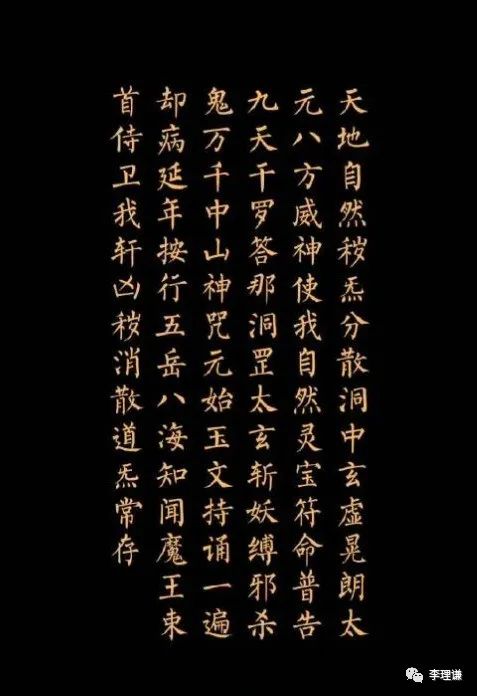 天地自然秽炁分散洞中玄虚晃朗太
元八方威神使我自然灵宝符命普告
九天干罗答那洞罡太玄斩妖缚邪杀
鬼万千中山神咒元始玉文持诵一遍
却病延年按行五岳八海知闻魔王束
首侍卫我轩凶秽消散道炁常存
李理谦